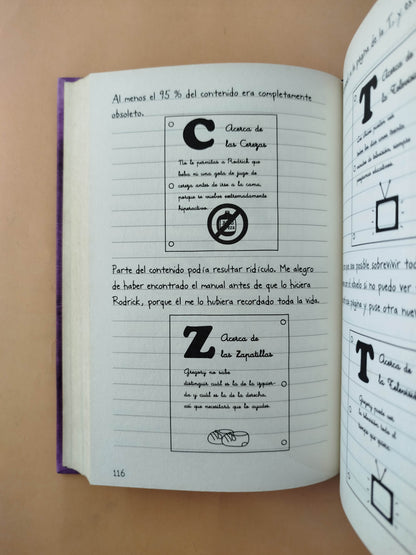 Al menos el 95 % del contenido era completamente
obsoleto.
C
Acerca de
las Cerezas
No le permitas a Rodrick que
beba ni una gota de jugo de
cereza antes de irse a la cama,
porque se vuelve extremadamente
hiperactivo.
Parte del contenido podía resultar ridículo. Me alegro
de haber encontrado el manual antes de que lo hiciera
Rodrick, porque él me lo hubiera recordado toda la vida.
Z
Acerca de
las Zapatillas
Gregory no sabe
distinguir cuál es la de la izquier-
da y cuál es la de la derecha,
así que necesitará que lo ayudes.
116
la página de la T, y es
T
Acerca de
la Televis
posible sobrevivir tod
si no puedo ver
página y puse otra nuev
T
Acerca de
la Televis
Gregory puede ver
la televisión todo el
tiempo que quiera.